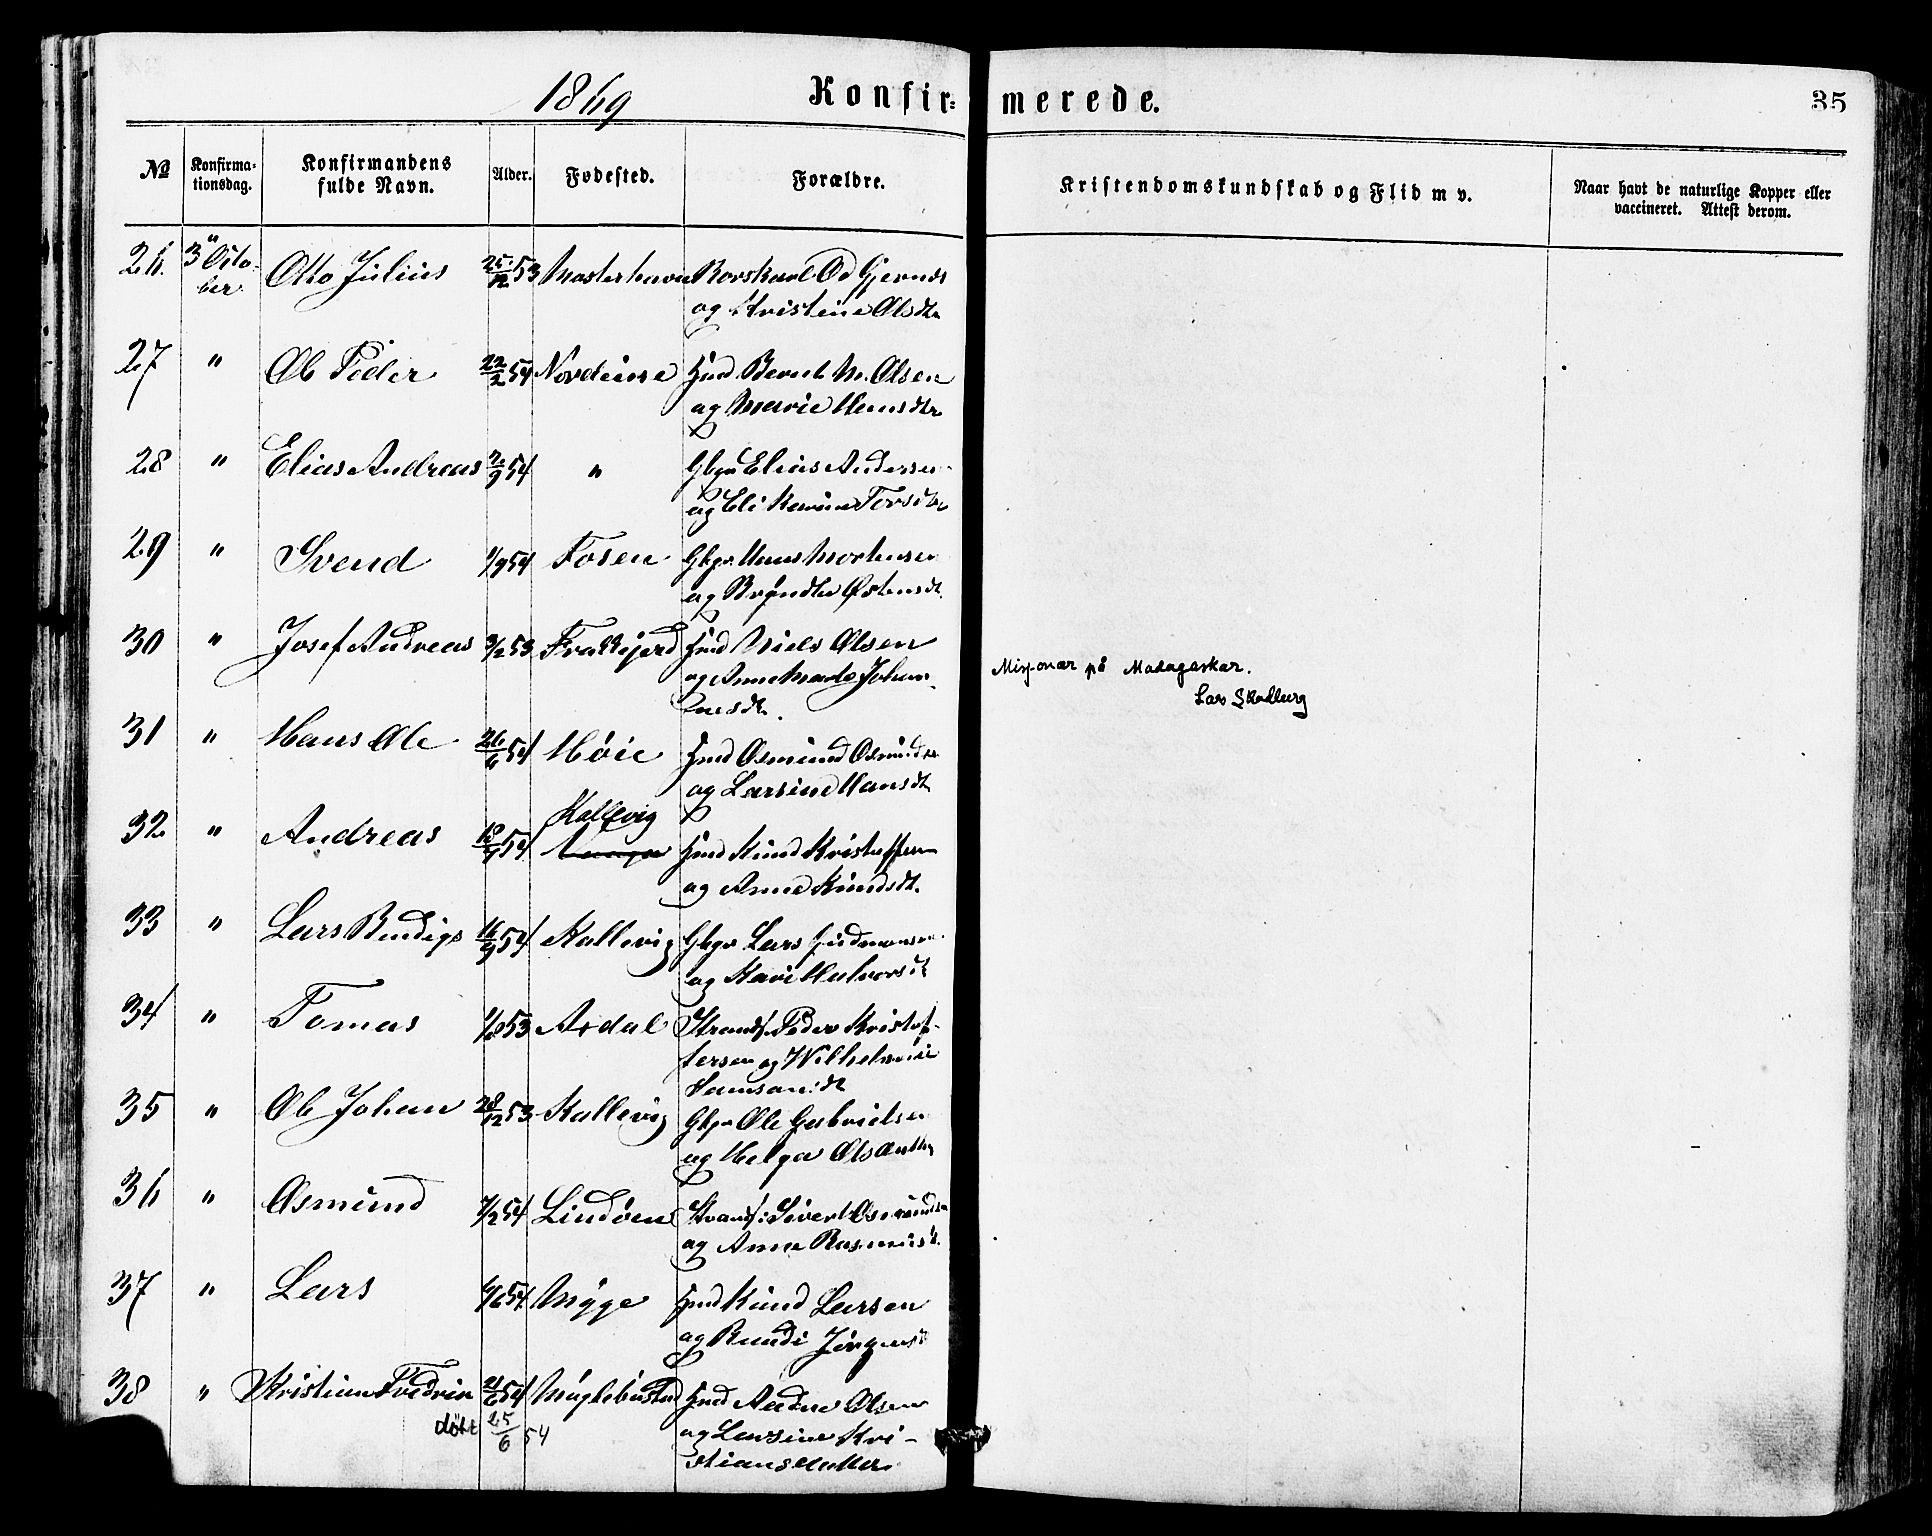 1869
Konfir-merede.
35
No
Konfirma-
tionsdag.
Konfirmandens
fulde Navn.
Alder.
Fødested.
Forældre.
Kristendomskundskab og Flid m v.
Naar havt de naturlige Kopper eller
vaccineret. Attest derom.
26. 3 Octo- Otto Julius 53 Mosterhavn
ber og Kristine Olsdtr
27 " Ole Peder 22/2 54 Fmd Bernt M. Olsen
og Marie Hansdtr
28 " Elias Andreas 54 " Gbgr Elias Andersen
og Eli Karine Torsdtr
29 " Svend 1/9 54 Fosen Gbgr Hans Mortensen
og Østensdt.
30 " Josef Andreas 53 Frakkgjerd Fmd Niels Olsen
og Anne Marta Johan-
nesdt.
Misjonær på Madagaskar.
Lars Skadberg
31 " Hans Ole 26/6 54 Høie Fmd Osmund Osmundsn
og Larsine Hansdt
Kallevig
32 " Andreas 54 Fmd Knud Kristoffersen
og Anne Knudsdt.
33 " Lars Bendigs 16/9 54 Kallevig Gbgr Lars Gudmunsen
og Kari Halvorsdt
34 " Tomas 53 Ardal Strands. Peder Kristof-
fersen og Wilhelmine
Samsonsdt
35 " Ole Johan 28/12 53 Kallevig Gbgr Ole Gabrielsen
og Helga
36 " Osmund 54 Lindøen Strands: Sivert Osmundsn
og Anne Rasmusd.
37 " Lars 54 Myge Fmd Knud Larsen
og Jørgensd
38 " Kristian Fredrik 21/6 54 Fmd Andne Olsen
døbt 25/6 54 og Larsine Kri-
stiansdatter